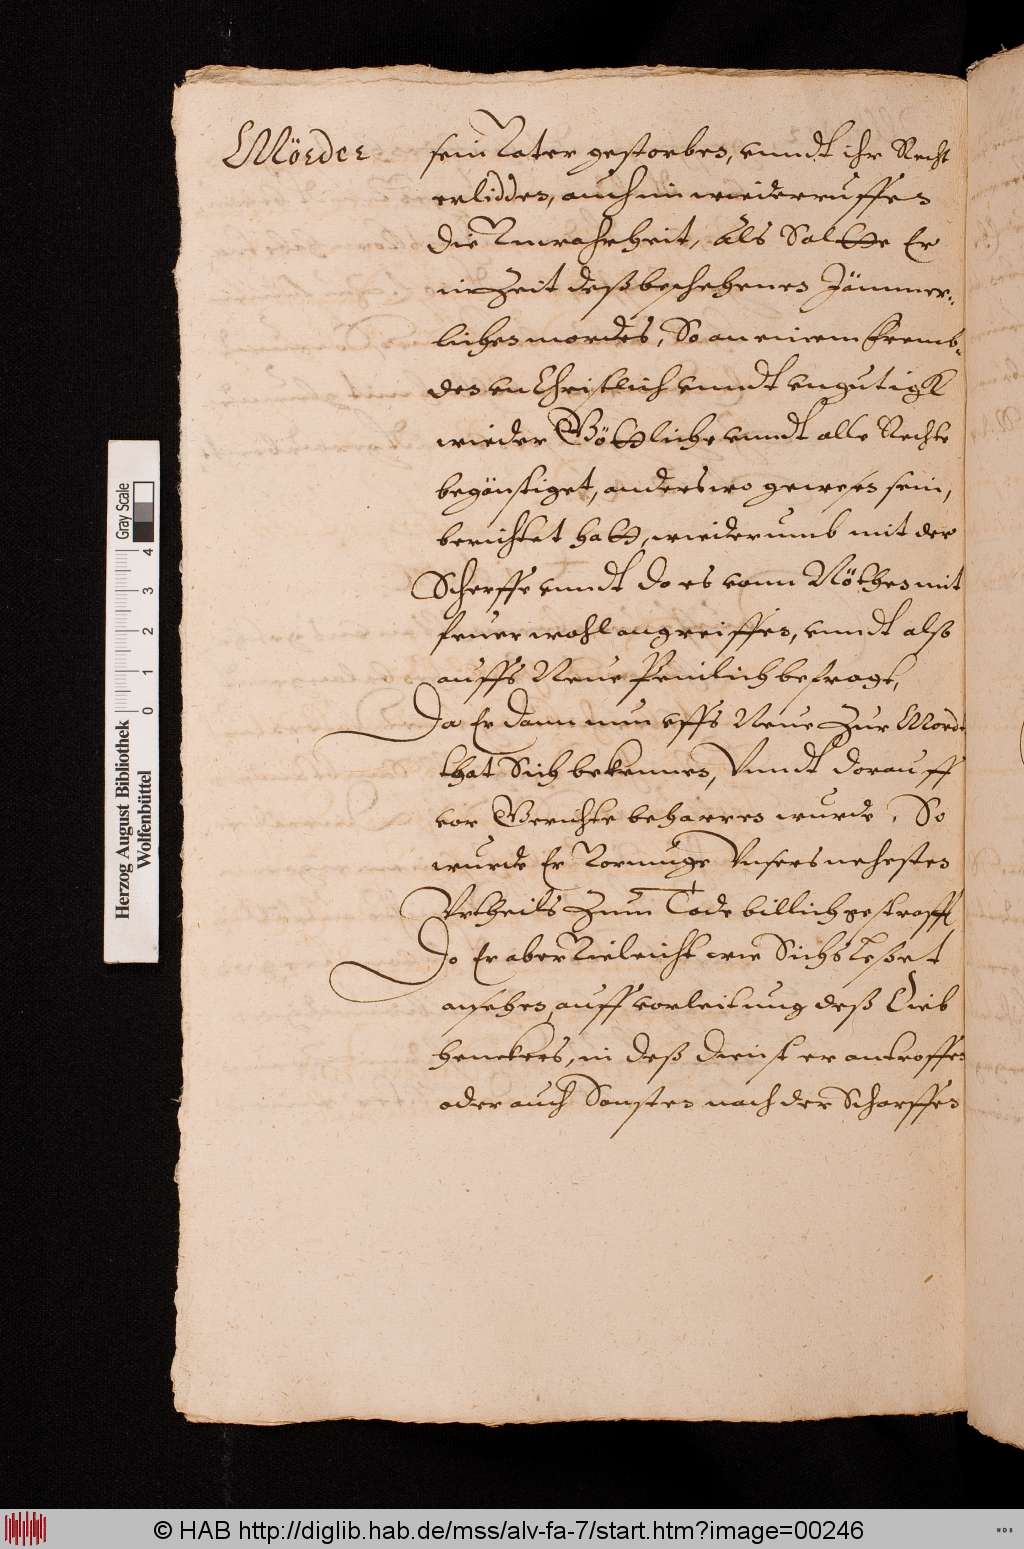 Mörder
sein Vater gestorben, vnndt ihr Recht
erlidden, auch in wiederruffen
die Vnwahrheit, Als Soltte Er
in Zeit deß beschehenen Jämmer-
lichen mordes, So an einem fremb-
den vnChristlich vnndt vngutigk
wieder Göttliche vnndt alle Rechte
begönstiget, anderswo gewesen sein,
berichtet hatt, wiederumb mit der
Scherffe vnndt do es vonn Nöthen mit
feuer wohl angreiffen, vnndt also
auffs Neue Peinlich befragt,
Da Er dann nun vffs Neue Zur Mordt
that Sich bekennen, Vnndt dorauff
vor Gerichte beharren wurde, So
wurde Er Vormüge Vnsers nehesten
Vrtheils Zum Tode billich gestrafft
Do Er aber Vieleicht wie Sichs leßet
ansehen, auff vorleitung deß Dieb
henckers, in deß dienst er antroffen
oder auch Sonsten nach der Scharffen
Herzog August Bibliothek
Wolfenbüttel
0 1 2 3 4
Gray Scale
© HAB http://diglib.hab.de/mss/alv-fa-7/start.htm?image=00246